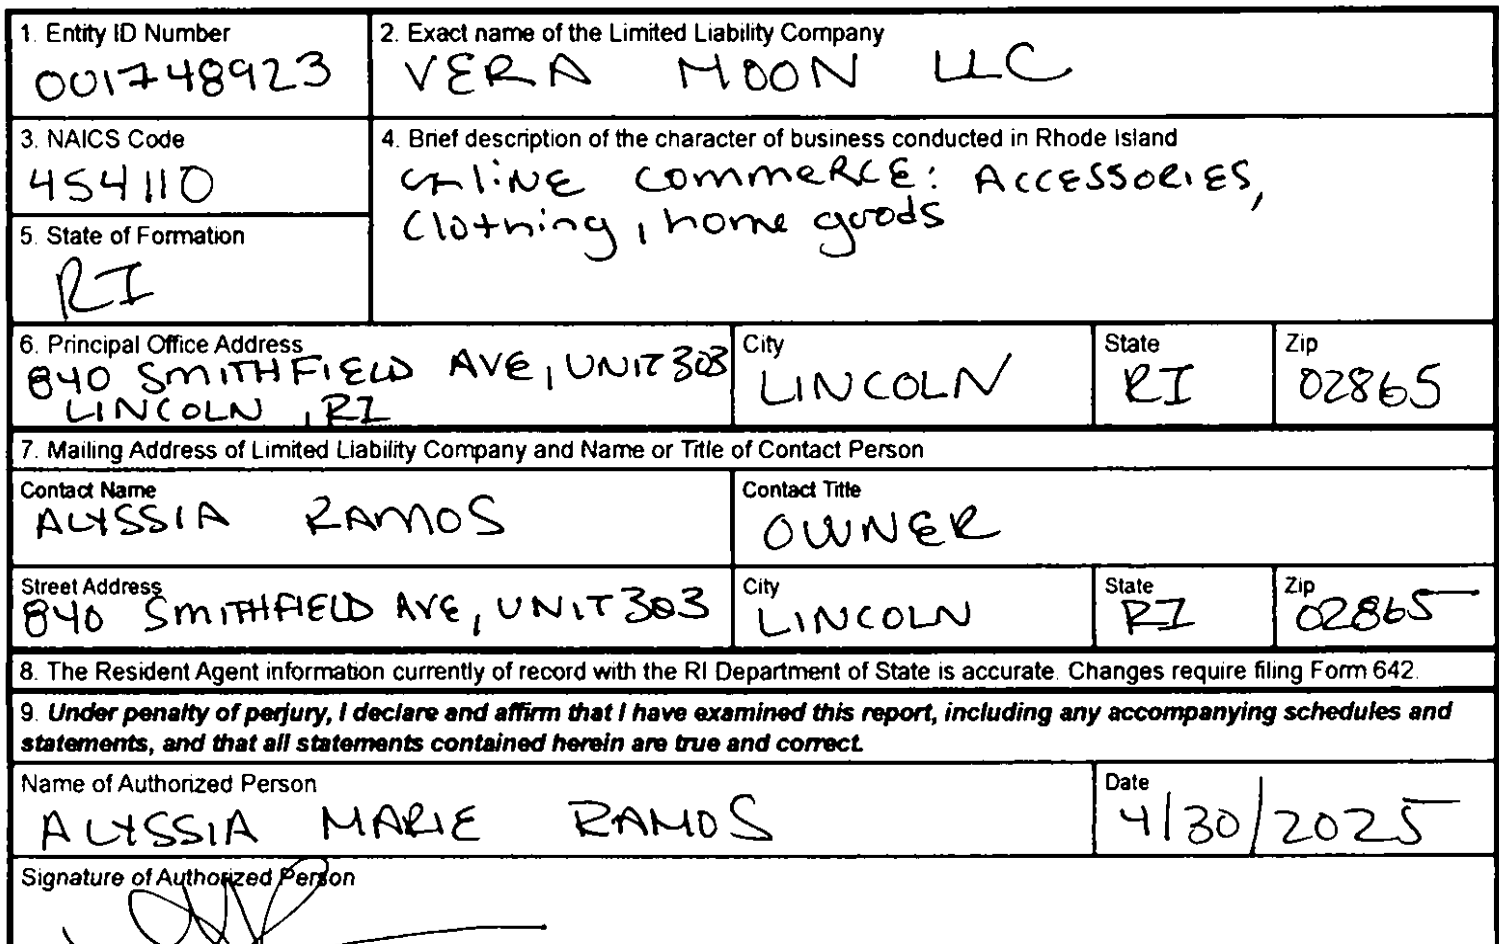 1. Entity ID Number
001748923
2. Exact name of the Limited Liability Company
VERA MOON LLC
3. NAICS Code
454110
4. Brief description of the character of business conducted in Rhode Island
ONLINE COMMERCE: ACCESSORIES,
Clothing, home goods
5. State of Formation
RI
6. Principal Office Address
840 SMITHFIELD AVE, UNIT 303
LINCOLN, RI
City
LINCOLN
State
RI
Zip
02865
7. Mailing Address of Limited Liability Company and Name or Title of Contact Person
Contact Name
ALYSSIA RAMOS
Contact Title
OWNER
Street Address
840 SMITHFIELD AVE, UNIT 303
City
LINCOLN
State
RI
Zip
02865
8. The Resident Agent information currently of record with the RI Department of State is accurate. Changes require filing Form 642.
9. Under penalty of perjury, I declare and affirm that I have examined this report, including any accompanying schedules and
statements, and that all statements contained herein are true and correct.
Name of Authorized Person
ALYSSIA MARIE RAMOS
Date
4/30/2025
Signature of Authorized Person